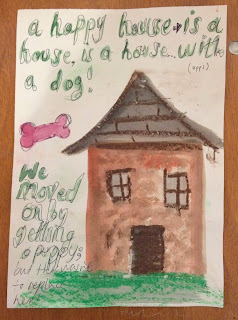 a happy house is a
house, is a house.. with
a dog!
We
moved
on by
getting
a puppy,
but
to replace
her